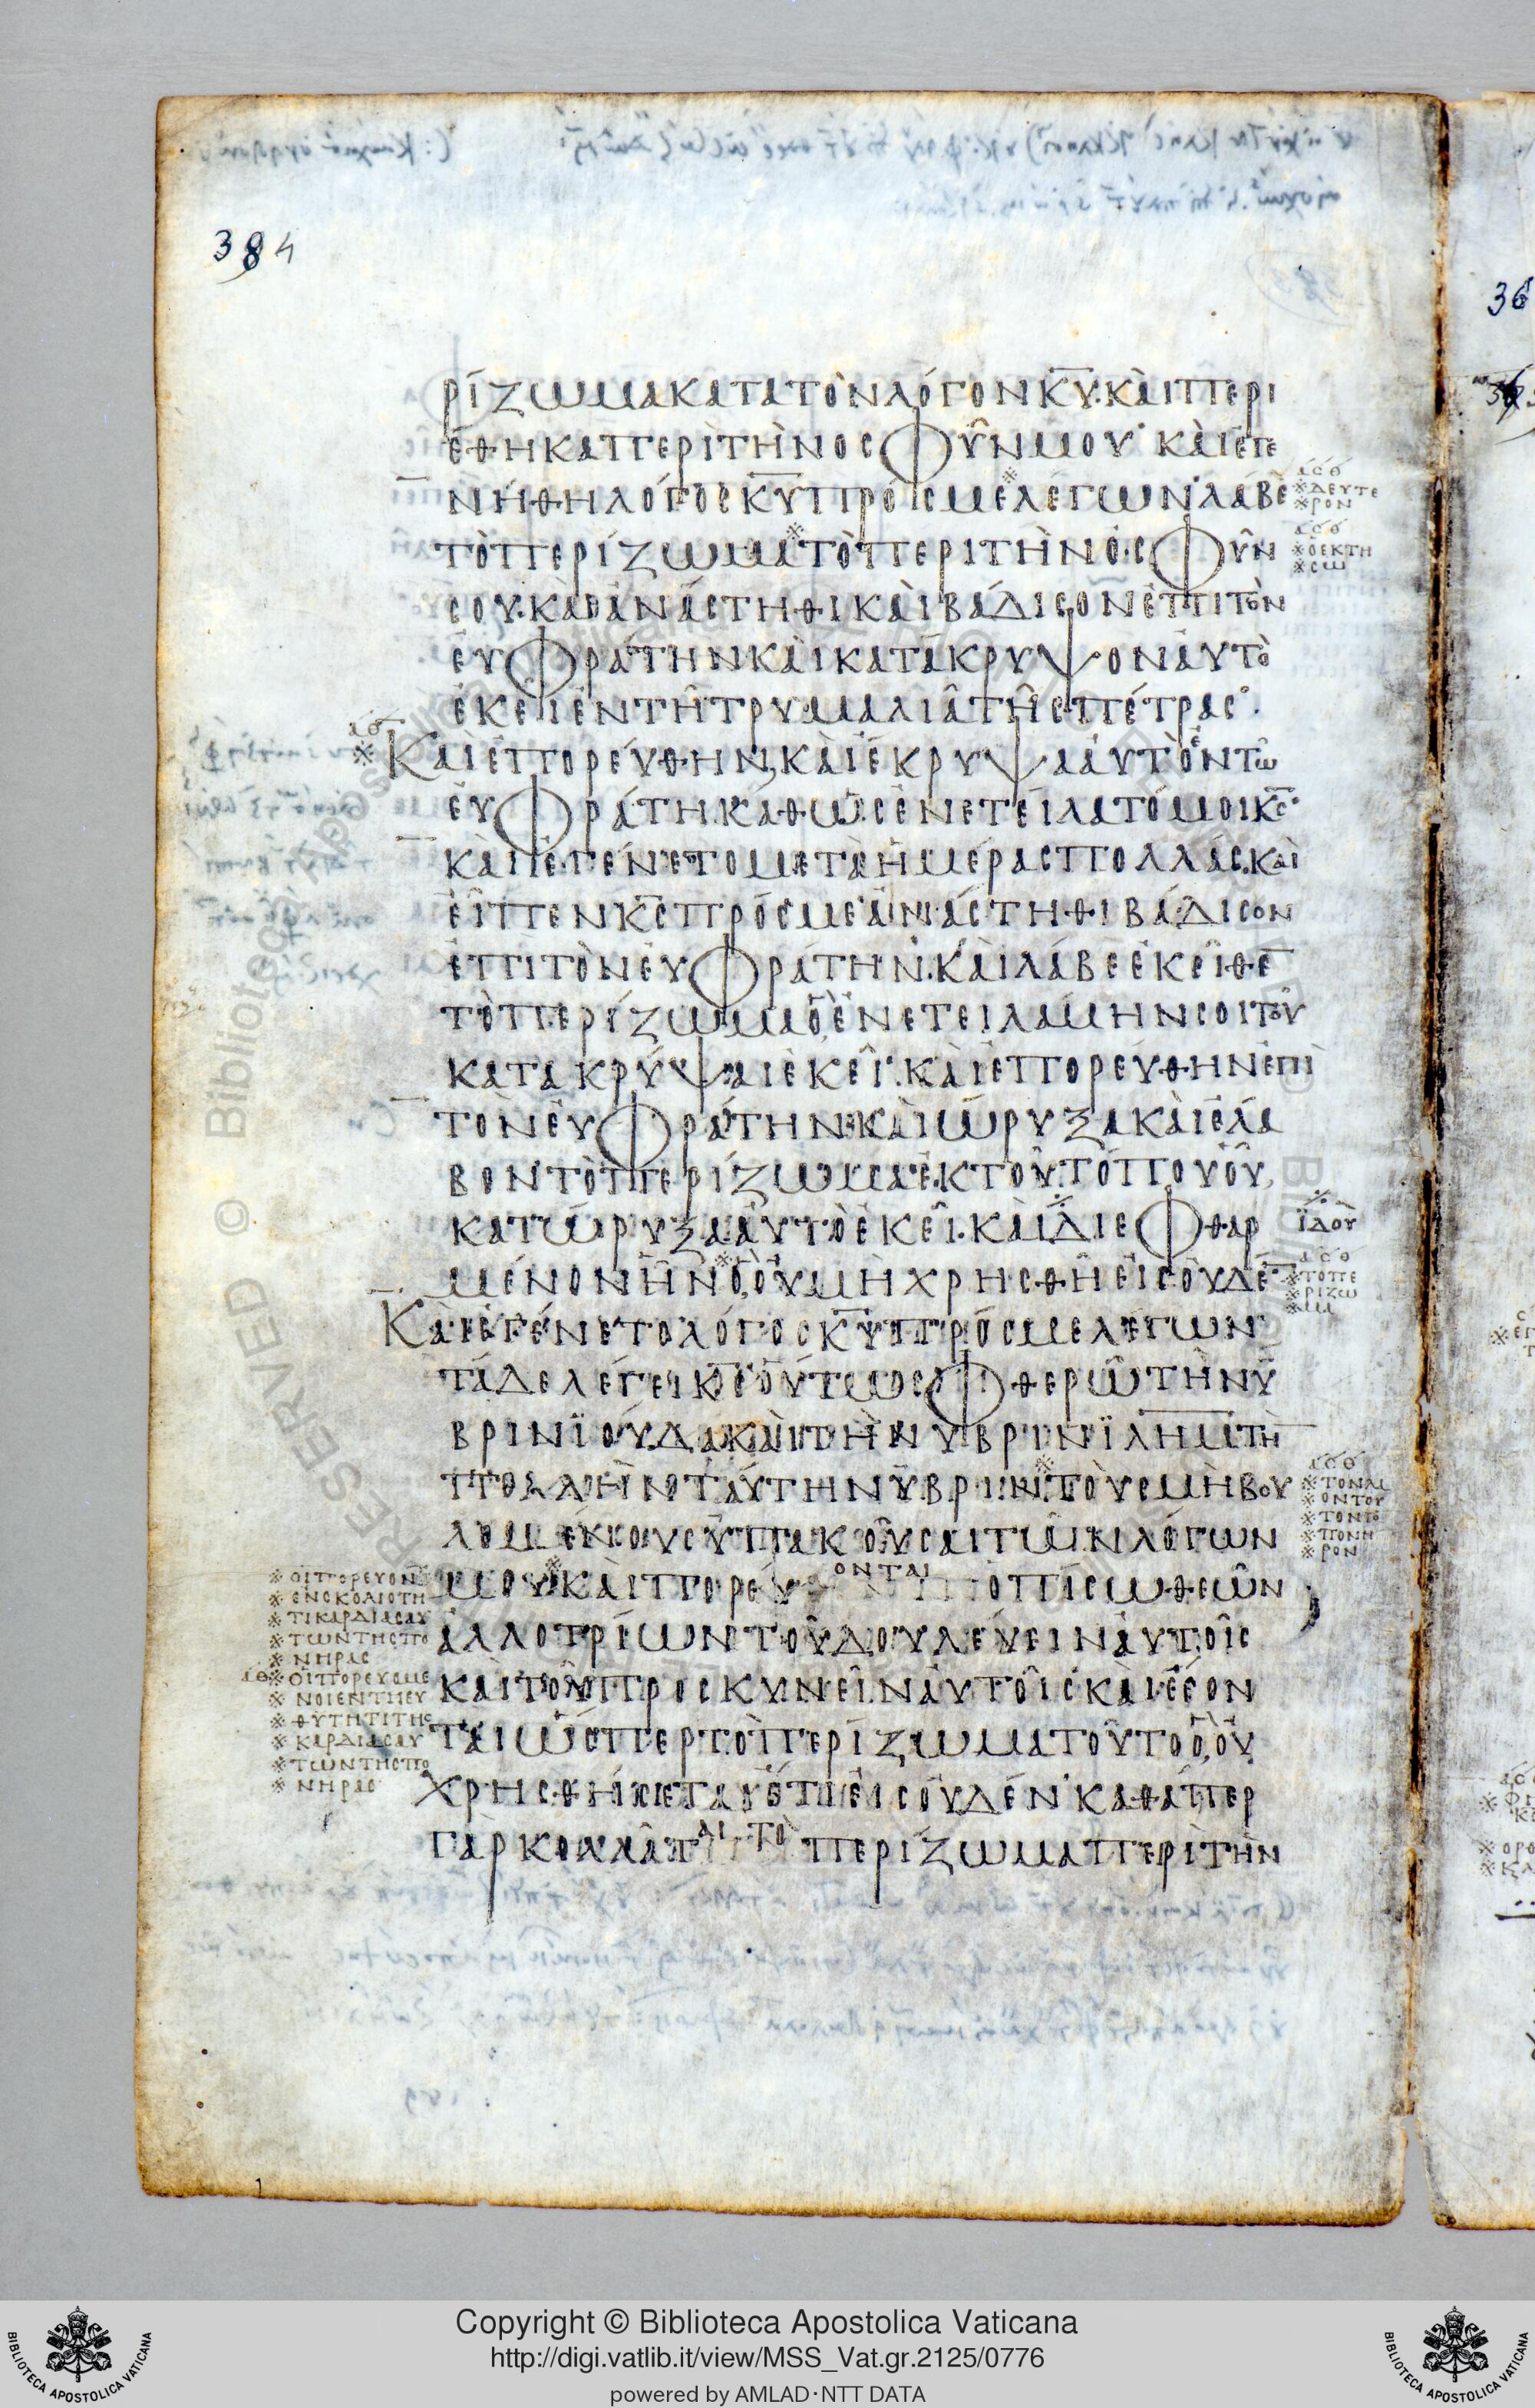 384
ρίζωμακατατὸνλόγονκ̅υ̅·κὰιπερι
έθηκαπερὶτὴνοσφῦνμου· κὰιἐγε
νήθηλόγοσκ̅υ̅πρόσμελέγων·λάβε
τὸπερίζωματὸπεριτὴνὀσφῦν
σου·κὰιἀνάστηθικὰιβάδισονἐπὶτὸν
ἐυφράτηνκὰικατάκρυψοναυτὸ
ἐκεῖἐντῆτρυμαλιᾶτῆσπέτρασ·
Καὶἐπορεύθην,κὰιἔκρυψααυτὸἐντῶ
ἐυφράτη·κάθὼσἐνετείλατόμοικ̅σ̅·
κὰιἐγένετομετὰἡμέρασπολλάσ·καὶ
ἐῖπενκ̅σ̅πρόσμεἀνάστηθιβάδισον
ἐπὶτὸνἐυφράτην·κὰιλάβεἐκεῖθε̅
τὸπερίζωμαὃἐνετειλάμηνσοιτοῦ
κατακρύψαιἐκεῖ·κὰιἐπορεύθηνἐπὶ
τὸνἐυφράτηνκὰιώρυξακὰιἔλα
βοντὸπερίζωμαἐκτοῦτόπουοὗ
κατώρυξααυτὸἐκεῖ·κὰιδιεφθαρ
μένονἦνὃουμὴχρησθῆἐισουδέ̅
Κὰιἐγένετολόγοσκ̅υ̅πρόσμελέγων
τάδελέγεικ̅σ̅ούτωσφθερῶτὴνὕ
βρινϊούδακὰιτὴνυβρινϊλημτὴ̅
πολλὴνταύτηνὕβριν·τοὺσμὴβου
λομένουσυπακοῦσαιτῶνλόγων
μουκὰιπορευονταιὀπίσωθεῶν
ἀλλοτρίωντοῦδουλέυειναυτοῖσ
κὰιτοῦπροσκυνεῖναυτοῖσ·κὰιἔσον
ταιὥσπερτὸπερίζωματοῦτοὃου
χρησθήσεταιἔτιἐισουδέν·καθάπερ
γὰρκολλᾶταιτὸπερίζωμαπερὶτὴν
※δευτε
※ρον
※ὁεκτη
※σω
ϊδοὺ
※τοπε
※ριζω
※μ
※τοναι
※οντου
※τοντο
※πονη
※ρον
※οιπορευον
※ενσκολιοτη
※τικαρδιασαυ
※τωντησπο
※νηρασ
※οιπορευομε
※νοιεντηευ
※θυτητιτησ
※καρδιασαυ
※τωντησπο
※νηρασ
36
Copyright © Biblioteca Apostolica Vaticana
http://digi.vatlib.it/view/MSS_Vat.gr.2125/0776
powered by AMLAD·NTT DATA
BIBLIOTECA APOSTOLICA VATICANA
BIBLIOTECA APOSTOLICA VATICANA